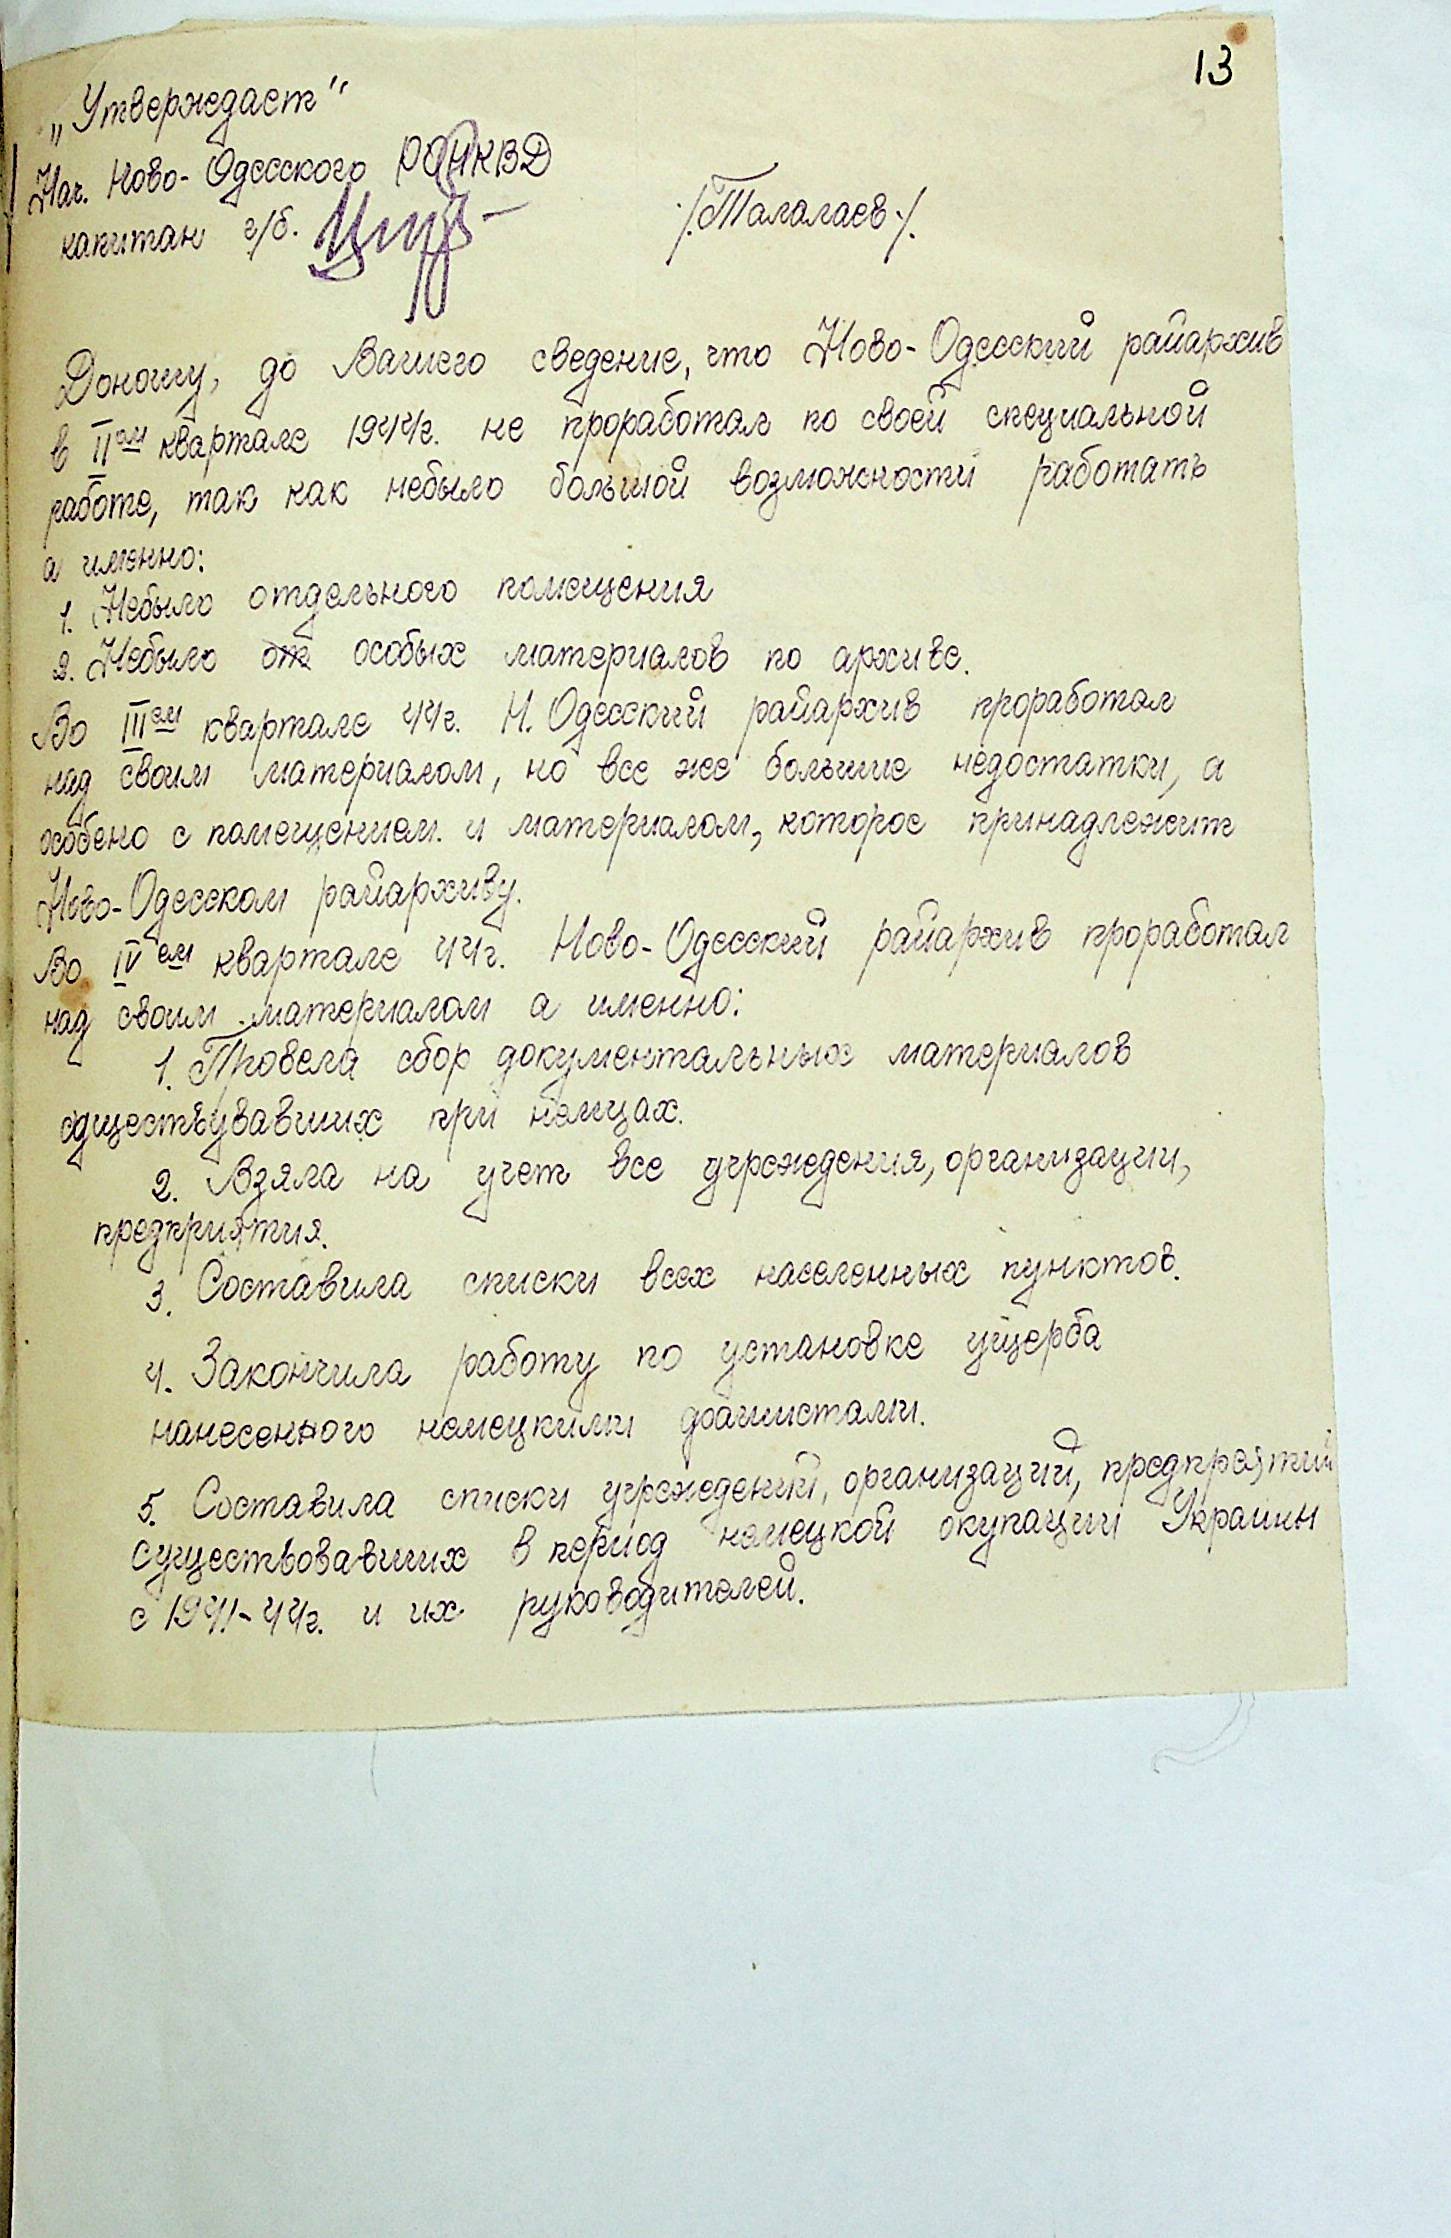 13
„Утверждает“
Нач. Ново-Одесского РОНКВД
капитан г/б. /Талалаев/.
Доношу, до Вашего сведение, что Ново-Одесский райархив
в II ом квартале 1944г. не проработал по своей специальной
работе, так как небыло большой возможности работать
а именно:
1. Небыло отдельного помещения
2. Небыло от особых материалов по архиве.
Во III ем квартале 44г. Н. Одесский райархив проработал
над своим материалом, но все же большие недостатки, а
особено с помещением и материалом, которое принадлежит
Ново-Одесском райархиву.
Во IV ем квартале 44г. Ново-Одесский райархив проработал
над своим материалом а именно:
1. Провела сбор документальных материалов
существувавших при немцах.
2. Взяла на учет все учреждения, организации,
предприятия.
3. Составила списки всех населенных пунктов.
4. Закончила работу по установке ущерба
нанесенного немецкими фашистами.
5. Составила списки учреждений, организаций, предприятий
существовавших в период немецкой окупации Украины
с 1941-44г. и их руководителей.